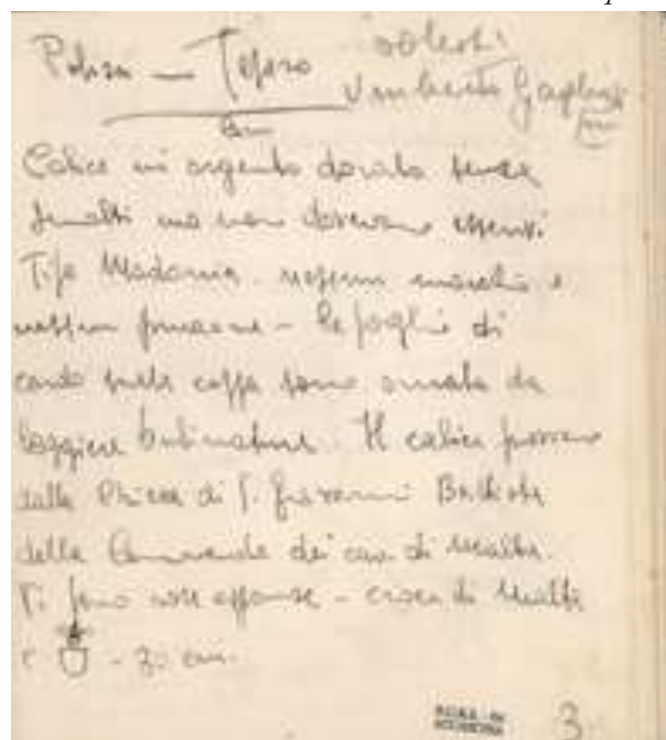 Polizzi — Tesoro
Umberto
Calice in argento dorato senza
smalti ma non dovevano esservi
Tipo Madonie. nessun marchio e
nessun punzone - le foglie di
cardo sulla coppa sono ornate da
leggiere bulinature. Il calice proviene
dalla Chiesa di S. Giovanni Battista
della Commenda dei cav. di Malta.
Vi sono cose - croce di Malta
e - 30 cm.
3.